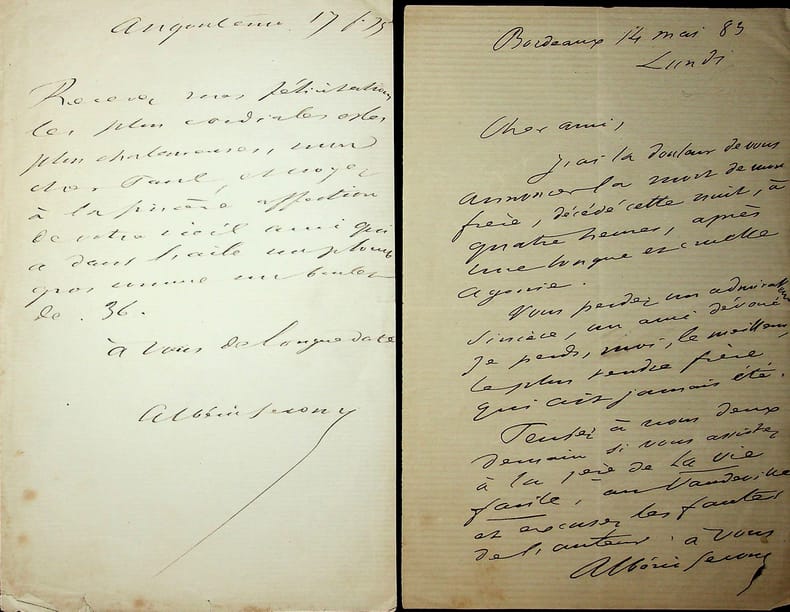 Angoulême 17
Recevez mes félicitations
les plus cordiales et les
plus chaleureuses, mon
cher Paul, et croyez
à la sincère affection
de votre vieil ami qui
a dans l'aile un plomb
gros comme un boulet
de . 36.
à vous de longue date
Albéric Second
Bordeaux 14 mai 83
Lundi
Cher ami,
J'ai la douleur de vous
annoncer la mort de mon
frère, décédé cette nuit, à
quatre heures, après
une longue et cruelle
agonie.
Vous perdez un admirateur
sincère, un ami dévoué
Je perds, moi, le meilleur
le plus tendre frère
qui ait jamais été.
Pensez à nous deux
demain si vous assistez
à la 1ère de La Vie
facile, au Vaudeville
et excusez les fautes
de l'auteur. à vous
Albéric Second